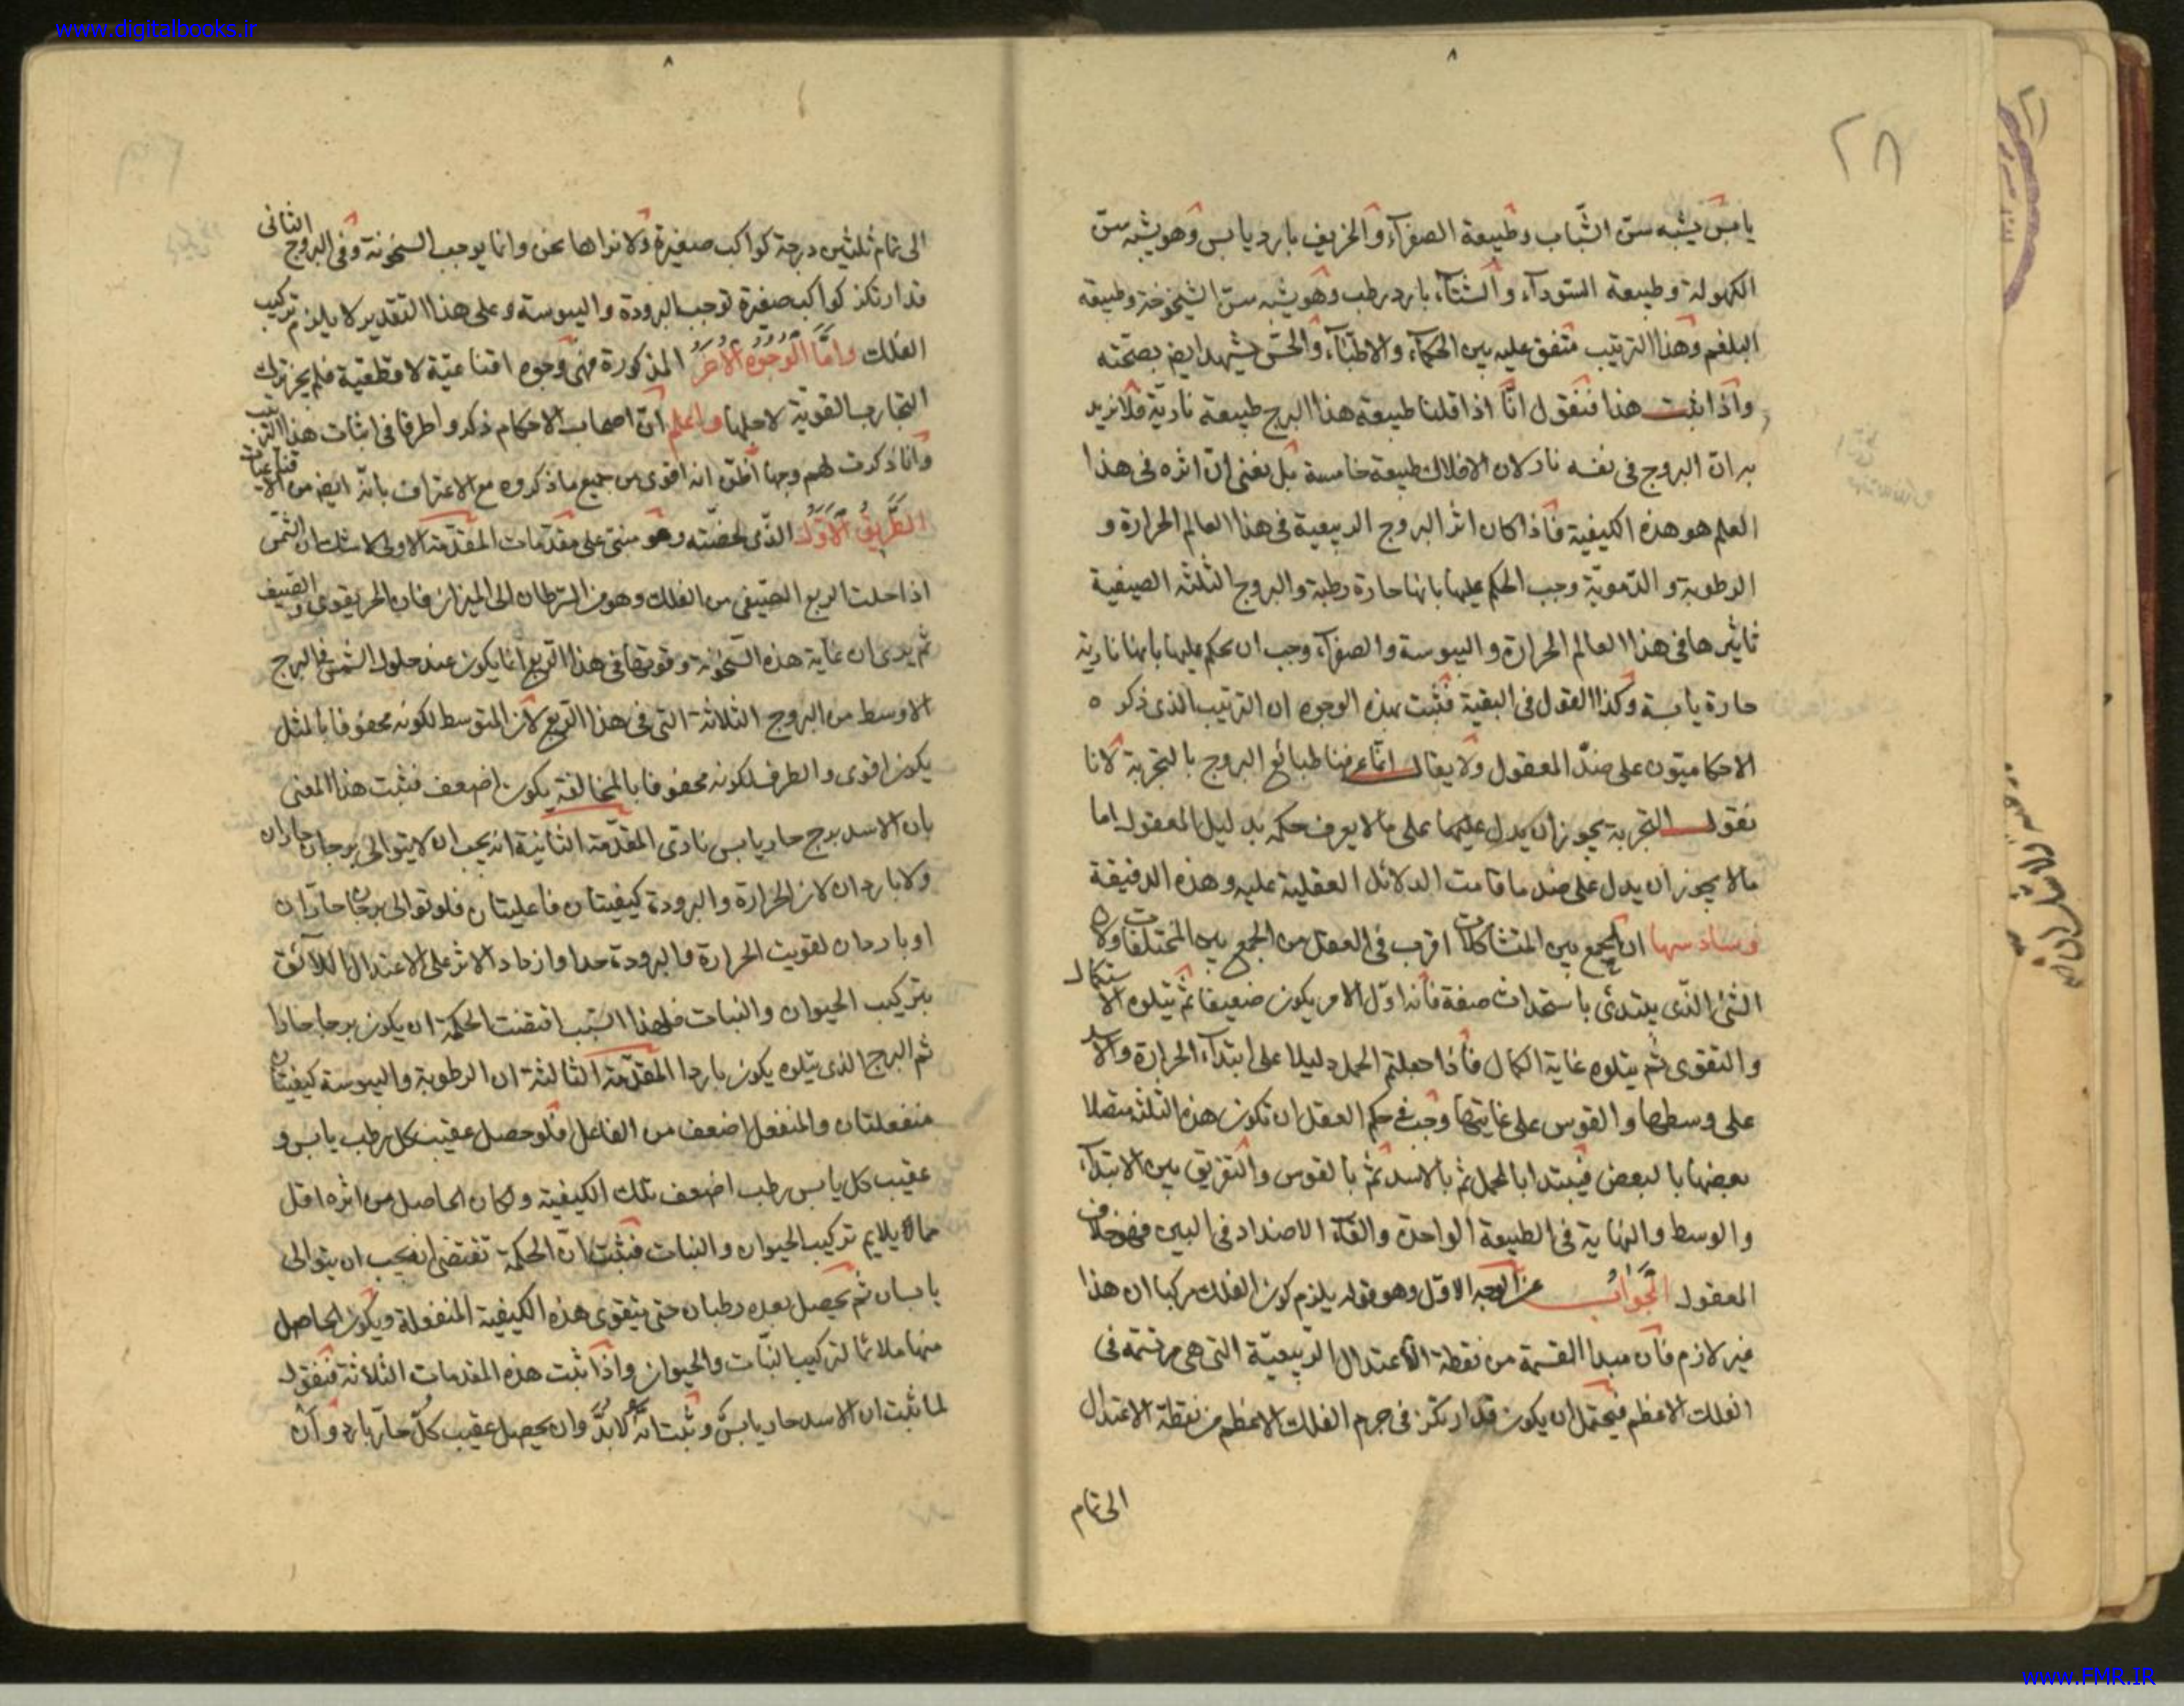 www.digitalbooks.ir
٨
٢٨
يابس يشبه سن الشّباب وطبيعة الصفرآء والخريف بارد يابس وهو يشبه سن
الكهولة وطبيعة السودآء والشتآء بارد رطب وهو يشبه سن الشيخوخة وطبيعة
البلغم وهذا الترتيب متفق عليه بين الحكمآء والاطبّآء والحسّ يشهد ايضا بصحّته
واذا ثبت هذا فنقول انّا اذا قلنا طبيعة هذا البرج طبيعة ناريّة فلا نريد
به انّ البروج فى نفسه نار لان الافلاك طبيعة خامسة بل نعنى انّ اثره فى هذا
العلم هو هذه الكيفية فاذا كان اثر البروج الربيعية فى هذا العالم الحرارة و
الرطوبة والدّمويّة وجب الحكم عليها بانها حارة رطبة والبروج الثلثه الصيفية
تاثيرها فى هذا العالم الحرارة واليبوسة والصفرآء وجب ان يحكم عليها بانها نارية
حارة يابسة وكذا القول فى البقية فثبت بهذه الوجوه ان الترتيب الذى ذكره
الاحكاميّون على ضدّ المعقول ولا يقال انّا عرفنا طبائع البروج بالتجربة لانا
نقول التجربة يجوز ان يدل عليها على ما لا يعرف حكمه بدليل المعقول اما
ما لا يجوز ان يدل على ضد ما قامت الدلائل العقلية عليه وهذه الدقيقة
وسادسها ان الجمع بين المتشاكلات اقرب فى العقل من الجمع بين المختلفات ولان
الشئ الّذى يبتدئ باستحداث صفة فانه اوّل الامر يكون ضعيفا ثم يتلوه الاستكمال
والتقوى ثم يتلوه غاية الكمال فاذا جعلتم الحمل دليلا على ابتدآء الحرارة والاسد
على وسطها والقوس على غايتها وجب فى حكم العقل ان تكون هذه الثلثة متصلا
بعضها بالبعض فيبتدا بالحمل ثم بالاسد ثم بالقوس والتفريق بين الابتدآء
والوسط والنهاية فى الطبيعة الواحدة والقآء الاضداد فى البين فهو خلاف
المعقول الجواب عن الوجه الاول وهو قوله يلزم كون الفلك مركبا ان هذا
غير لازم فان مبدا القسمة من نقطة الاعتدال الرّبيعيّة التى هى مرتسمة فى
الفلك الاعظم فيحتمل ان يكون قد ارتكز فى جرم الفلك الاعظم من نقطة الاعتدال
الى تمام
٨
الى تمام ثلثين درجة كواكب صغيرة ولا نراها نحن وانما يوجب السخونة وفى البروج الثانى
قد ارتكز كواكب صغيرة توجب البرودة واليبوسة وعلى هذا التقدير لا يلزم تركيب
الفلك وامّا الوجوه الاخر المذكورة فهى وجوه اقناعيّة لا قطعية فلم يجز ترك
التجارب القوية لاجلها واعلم انّ اصحاب الاحكام ذكروا طرقا فى اثبات هذا الترتيب
وانا ذكرت لهم وجها اظنّ انه اقوى من جميع ما ذكروه مع الاعتراف بانّه ايضا من الاقناعيات
الطّريق الاوّل الذّى وهو مبنى على مقدّمات المقدّمة الاولى لا شك ان الشمس
اذا حلت الربع الصّيفى من الفلك وهو من السّرطان الى الميزان فان الحر يقوى الصيف
ثم يدى ان غاية هذه السّخونة وقوتها فى هذا الربع انما يكون عند حلول الشمس فى البرج
الاوسط من البروج الثلاثة التى فى هذا الربع لان المتوسط لكونه محفوفا بالمثل
يكون اقوى والطرف لكونه محفوفا بالمخالفة يكون اضعف فثبت هذا المعنى
بان الاسد برج حار يابس نارى المقدّمة الثانية انه يجب ان لا يتوالى برجان حاران
ولا باردان لان الحرارة والبرودة كيفيتان فاعليتان فلو توالى برجان حارّان
او باردان لقويت الحرارة والبرودة جدا وازداد الاثر على الاعتدال اللآئق
بتركيب الحيوان والنبات فلهذا السّبب اقتضت الحكمة ان يكون برجا حارا
ثم البرج الذى يتلوه يكون باردا المقدّمة الثالثة ان الرطوبة واليبوسة كيفيتان
منفعلتان والمنفعل اضعف من الفاعل فلو حصل عقيب كل رطب يابس و
عقيب كل يابس رطب اضعف تلك الكيفية ولكان الحاصل من اثره اقل
مما يلايم تركيب الحيوان والنبات فثبت انّ الحكمة تقتضى انه يجب ان يتوالى
يابسان ثم يحصل بعده رطبان حتى يتقوى هذه الكيفية المنفعلة ويكون الحاصل
منها ملائما لتركيب النّبات والحيوان واذا ثبت هذه المقدمات الثلاثة فنقول
لما ثبت ان الاسد حار يابس وثبت انّه لا بدّ وان يحصل عقيب كلّ حارّ بارد وان
www.FMR.IR